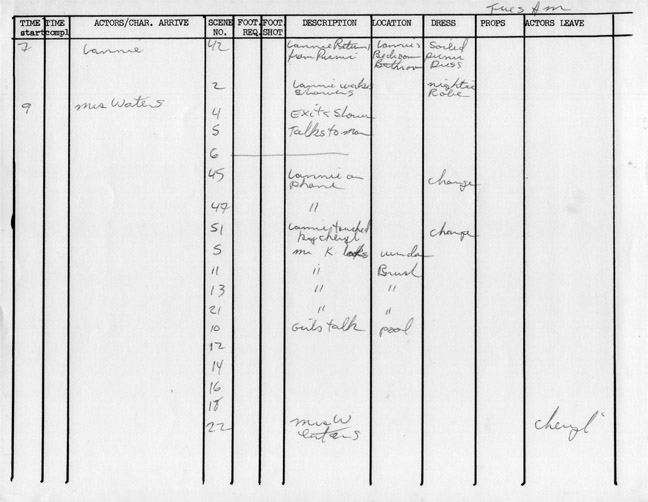 Tues Am
TIME start TIME compl ACTORS/CHAR. ARRIVE SCENE NO. FOOT. REQ. FOOT SHOT DESCRIPTION LOCATION DRESS PROPS ACTORS LEAVE
7 Lannie 42 Lannie Returns Lannie's Soiled
from Picnic Bedroom picnic
Bathroom Dress
2 Lannie wakes nightie
Showers Robe
9 Mrs Waters 4 Exits Shower
5 Talks to mom
6
45 Lannie on change
phone
47 "
51 Lannie touched change
by cheryl
5 Mr K. looks window
11 " Brush
13 " "
21 " "
10 Girls talk pool
12
14
16
18
22 Mrs W cheryl
eaters